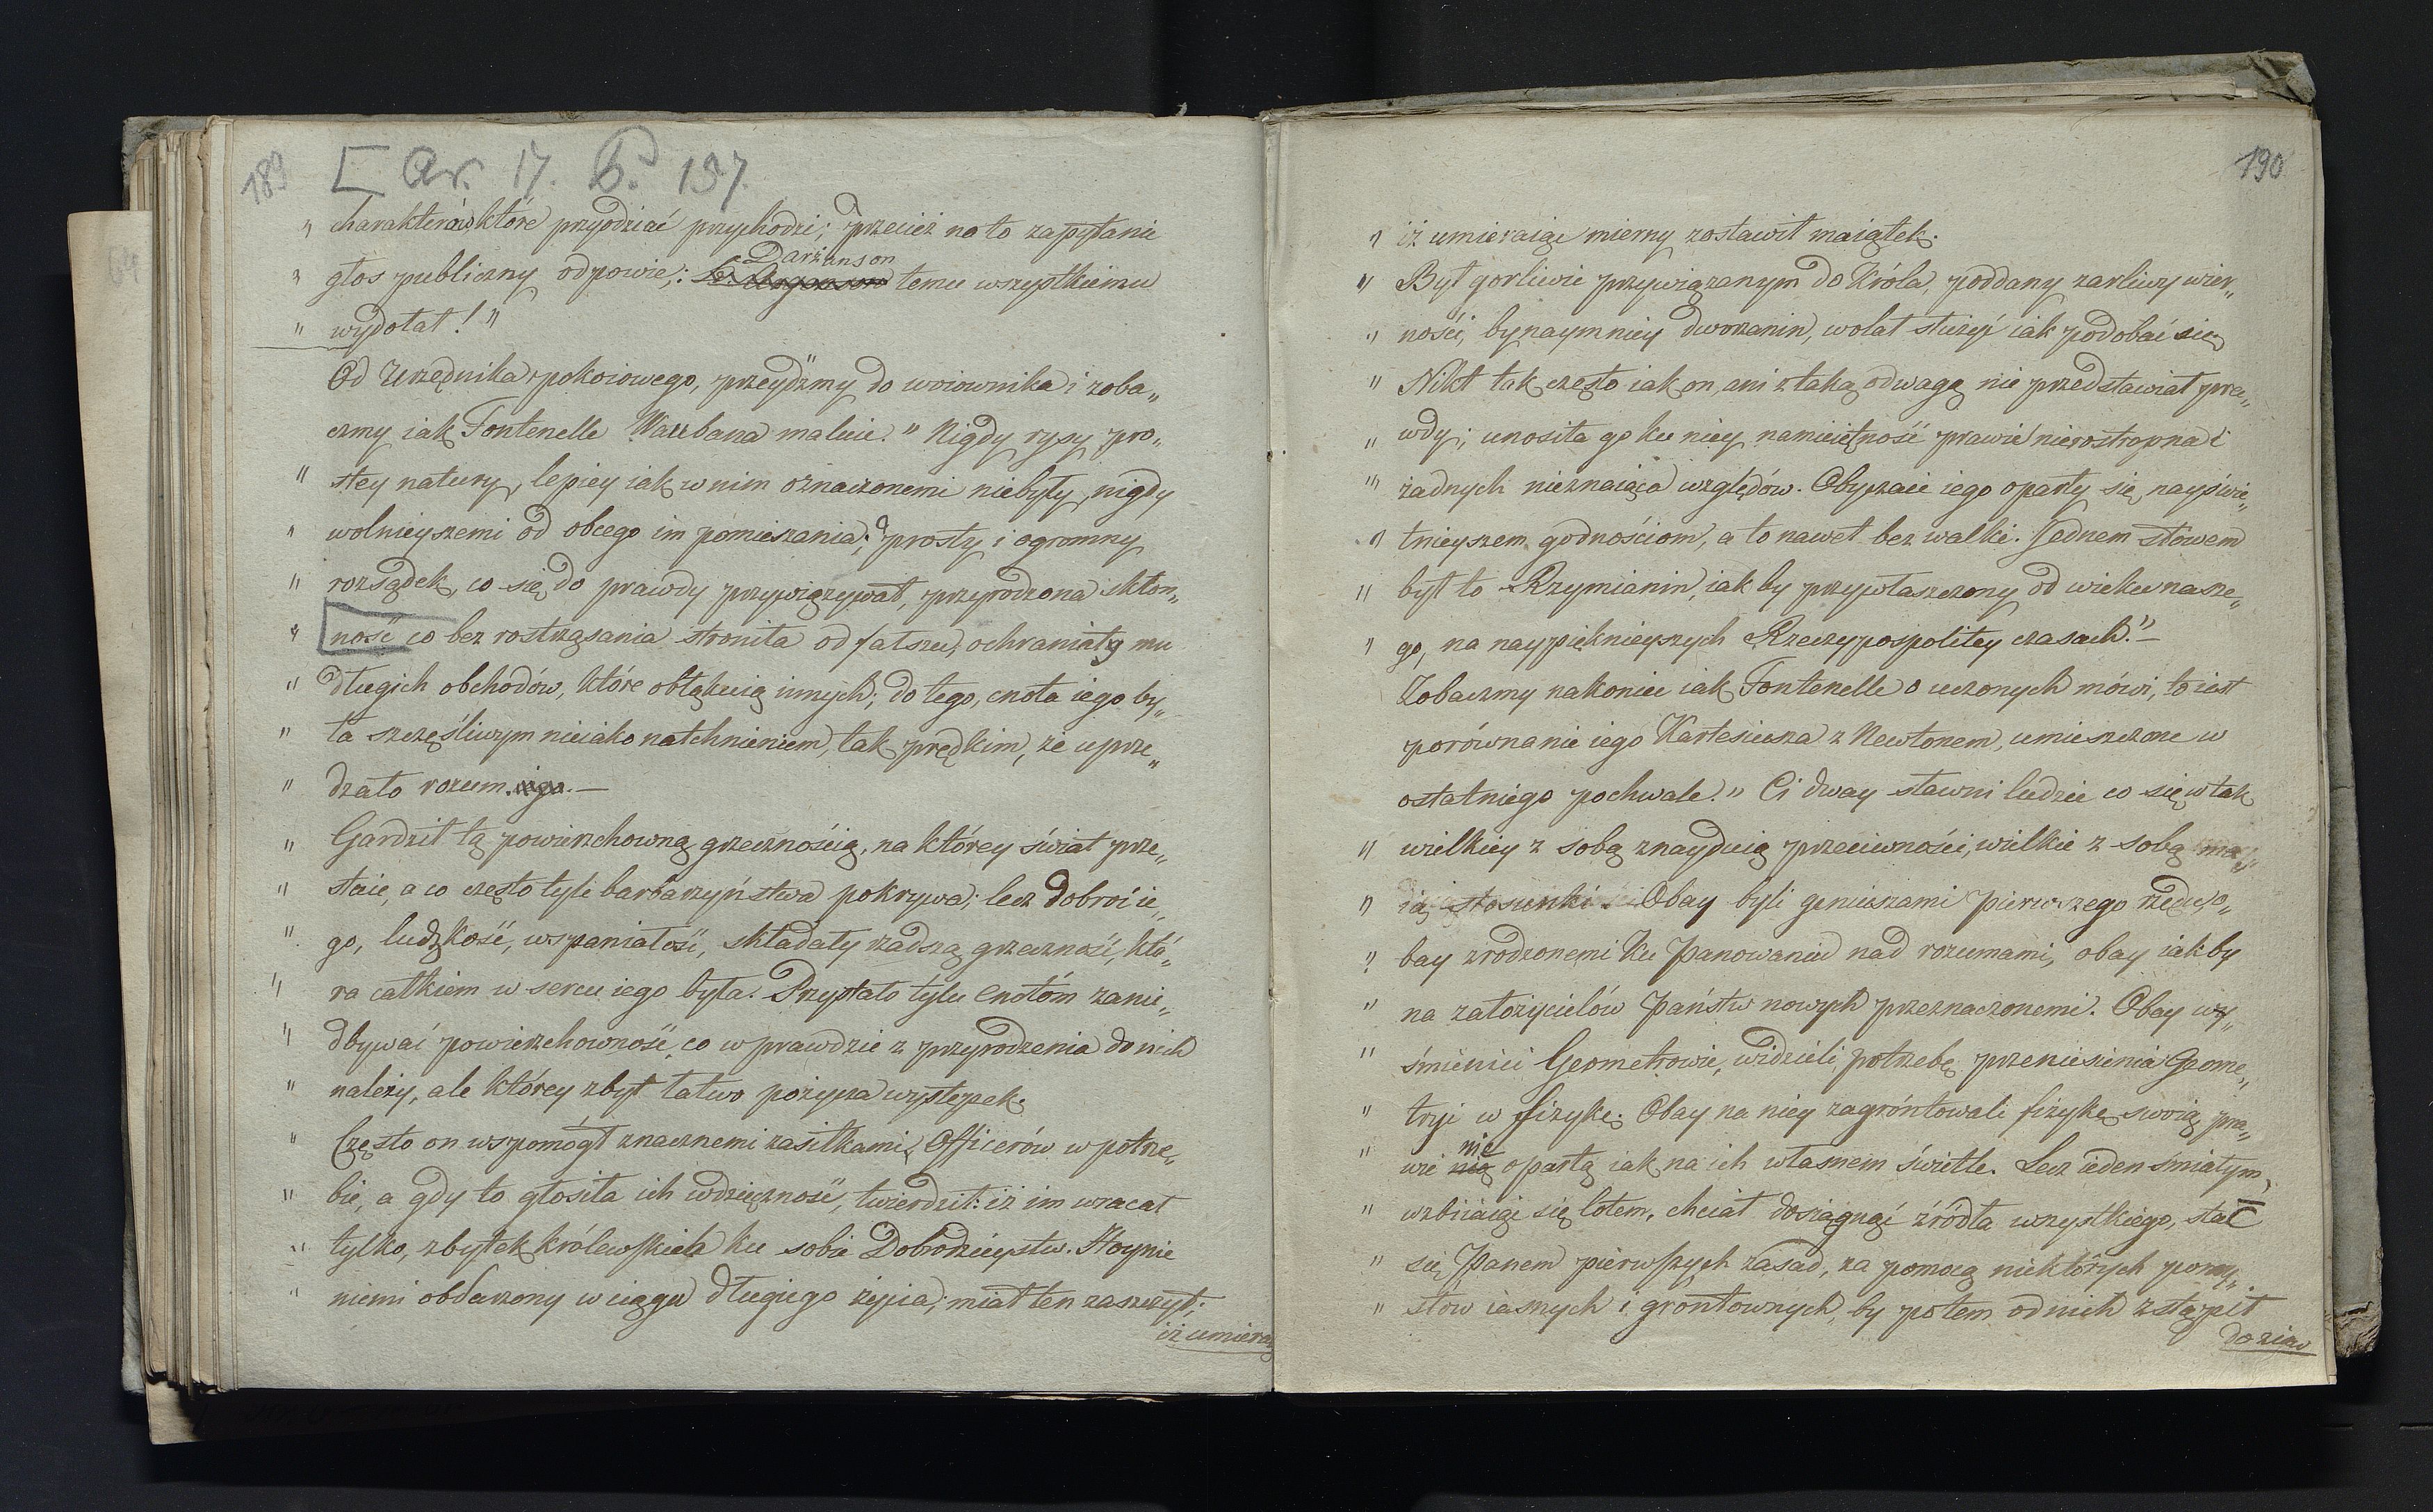 189
[ Ar. 17. P. 137.
„ charakterów, które przyodziać przychodzi; przecież na to zapytanie
Darżanson
„ głos publiczny odpowie;: temu wszystkiemu
„ wydołał!"
Od Urzędnika pokoiowego, przeydźmy do woiownika i zoba„
czmy iak Fontenelle Waubana maluie." Nigdy rysy pro„
„ stey natury, lepiey iak w nim oznaczonemi niebyły, nigdy
„ wolnieyszemi od obcego im pomieszania; prosty i ogromny
„ rozsądek, co się do prawdy przywiązywał, przyrodzona skłon„
„ ność co bez rostrząsania stroniła od fałszu, ochraniały mu
„ długich obchodów, które obłąkuią innych; do tego, cnota iego by„
„ ła szczęśliwym nieiako natchnieniem, tak prędkim, że uprze„
„ dzało rozum. iego. —
„ Gardził tą powierzchowną grzecznością, na którey świat prze„
„ staie, a co często tyle barbarzyństwa pokrywa; lecz dobroć ie„
„ go, ludzkość, wspaniałość, składały rzadszą grzeczność, któ„
„ ra całkiem w sercu iego była. Przystało tylu cnotóm zanie„
„ dbywać powierzchowność, co w prawdzie z przyrodzenia do nich
„ należy, ale którey zbyt łatwo pożycza występek.
„ Często on wspomógł znacznemi zasiłkami, Officerów w potrze„
„ bie, a gdy to głosiła ich wdzięczność, twierdził: iż im wracał
„ tylko, zbytek królewskich ku sobie Dobrodzieystw. Hoynie
„ niemi obdarzony w ciągu długiego życia, miał ten zaszczyt:
iż umiera„
190
„ iż umieraiąc mierny zostawił maiątek.
„ Był gorliwie przywiązanym do Króla, poddany żarliwy wier„
„ ności, bynaymniey dworzanin, wolał służyć iak podobać się.
„ Nikt tak często iak on, ani z taką odwagą nie przedstawiał pra„
„ wdy; unosiła go ku niey namiętność prawie nierostropna i
„ żadnych nieznaiąca względów. Obyczaie iego oparły się nayświe„
„ tnieyszem godnościom, a to nawet bez walki. Jednem słowem
„ był to Rzymianin, iak by przywłaszczony od wieku nasze„
„ go, na naypięknieyszych Rzeczypospolitey czasach." —
Zobaczmy nakoniec iak Fontenelle o uczonych mówi, to iest
porównanie iego Kartesiusza z Newtonem, umieszczone w
ostatniego pochwale." Ci dway sławni ludzie co się w tak
„ wielkiey z sobą znayduią przeciwności, wielkie z sobą ma„
„ ią stosunki. Obay byli geniuszami pierwszego rzędu, o„
„ bay zrodzonemi ku Panowaniu nad rozumami, obay iak by
„ na założycielów Państw nowych przeznaczonemi. Obay wy„
„ śmienici Geometrowie, widzieli potrzebę przeniesienia Geome„
„ tryi w fizykę. Obay na niey zagróntowali fizykę swoią, pra„
nie
„ wie nią opartą iak na ich własnem świetle. Lecz ieden śmiałym,
„ wzbiiaiąc się lotem, chciał dosiągnąć źródła wszystkiego, stać
„ się Panem pierwszych zasad, za pomocą niektórych pomy„
„ słow iasnych i grontownych, by potem od nich zstąpił
do ziaw